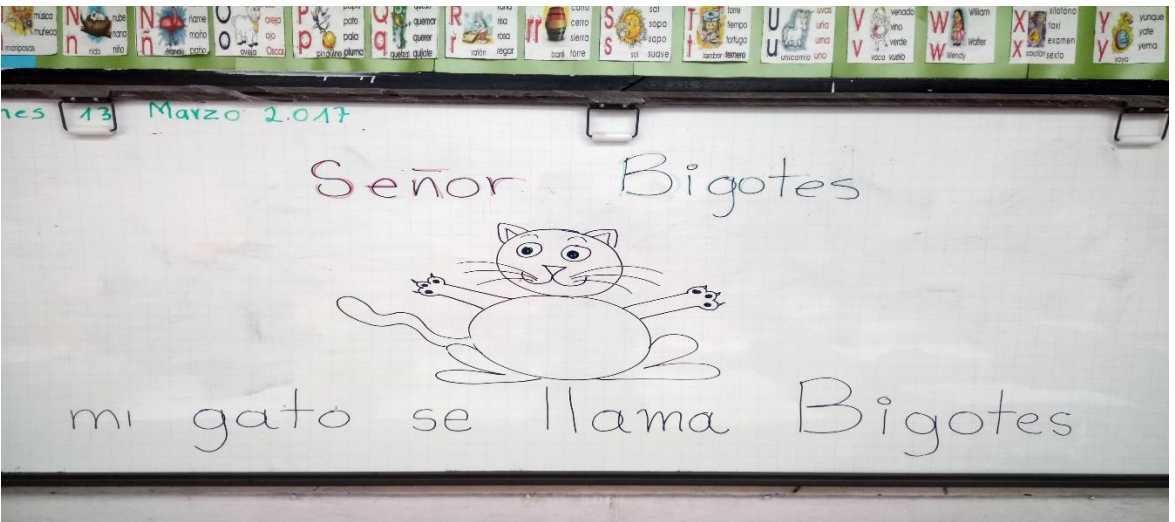 musica
muñeca
mariposas
N n
nube
nana
nido niño
Ñ ñ
ñame
moño
paño
O o
oreja
ojo
oveja Oscar
P p
pato
pala
pingüino pluma
Q q
quemar
querer
quetzal quijote
R r
risa
rosa
ratón regar
rr
carro
cerro
sierra
barril torre
S s
sal
sapo
sopa
sol suave
T t
torre
tiempo
tortuga
tambor ternero
U u
uvas
uña
urna
unicornio uno
V v
venado
vino
verde
vaca vuelo
W w
William
Walter
Wendy
X x
xilófono
taxi
examen
saxofón sexto
Y y
yunque
yate
yema
yoyo
nes 13 Marzo 2.017
Señor Bigotes
mi gato se llama Bigotes